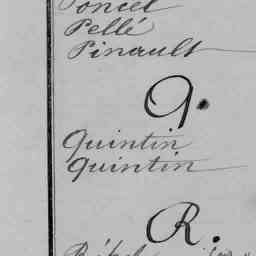 Poncet
Pellé
Pinault
Q.
Quintin
Quintin
R.